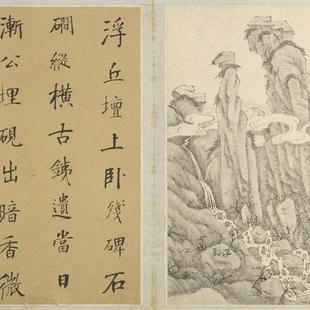 浮丘壇上卧殘碑石
磵縱橫古銕遺當日
漸公埋硯出暗香微